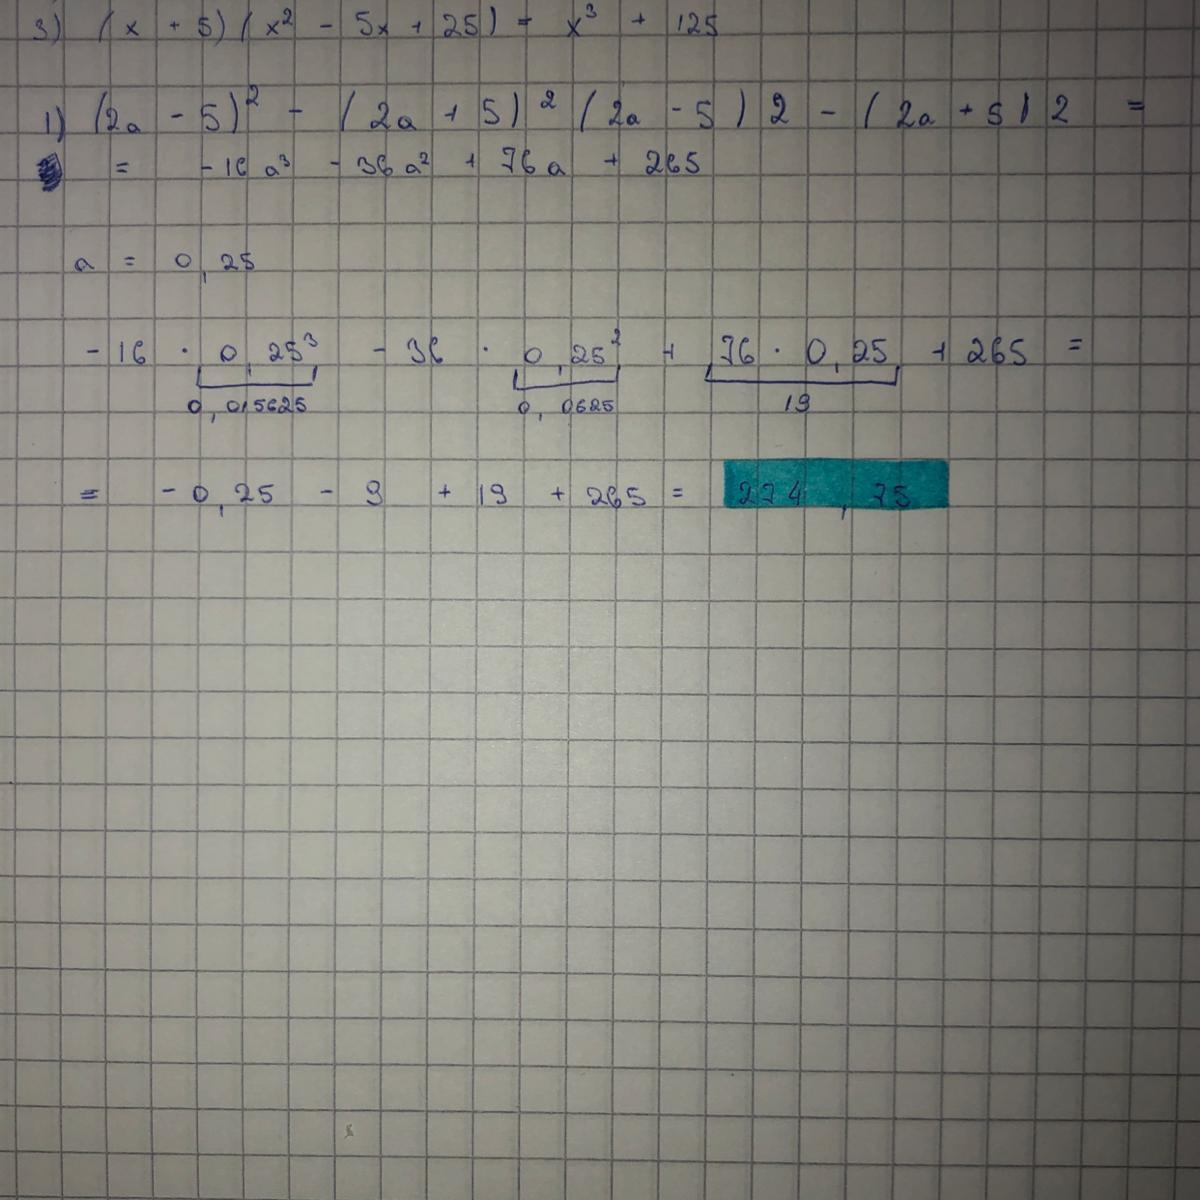 3) (x + 5)(x² - 5x + 25) = x³ + 125
1) (2a - 5)² - (2a + 5)² (2a - 5) 2 - (2a + 5) 2 =
= -16a³ - 36a² + 76a + 265
a = 0,25
-16 · 0,25³ - 36 · 0,25² + 76 · 0,25 + 265 =
0,015625 0,0625 19
= -0,25 - 9 + 19 + 265 = 274,75